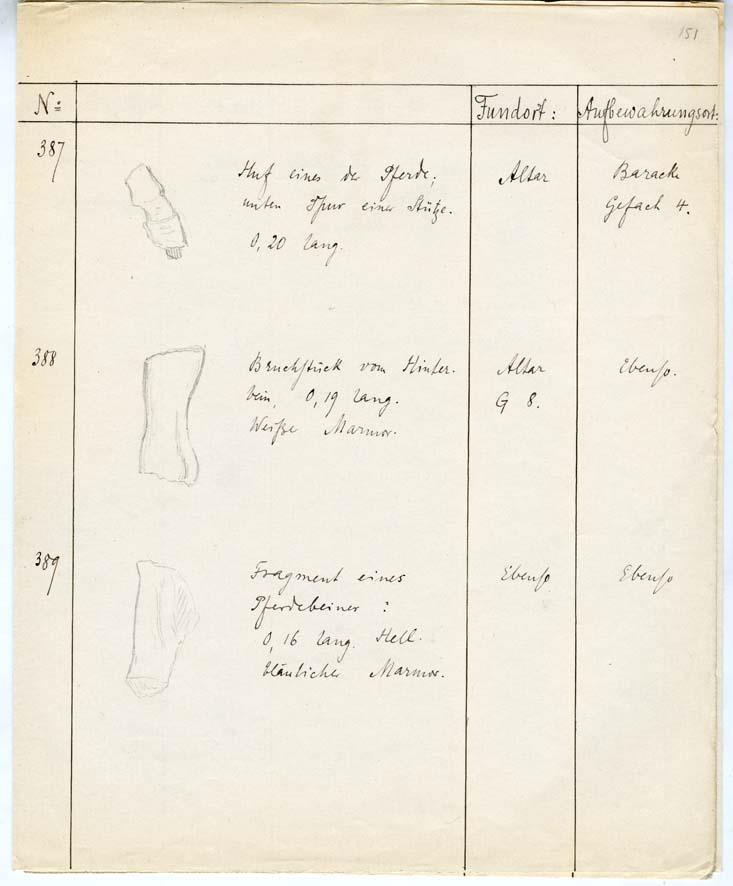 151
No: Fundort: Aufbewahrungsort:
387
Huf eines der Pferde; Altar Baracke
unten Spur einer Stütze. Gefach 4.
0,20 lang.
388
Bruchstück vom Hinter- Altar Ebenso.
bein, 0,19 lang. G 8.
Weißer Marmor.
389
Fragment eines Ebenso Ebenso
Pferdebeines :
0,16 lang. Hell-
bläulicher Marmor.